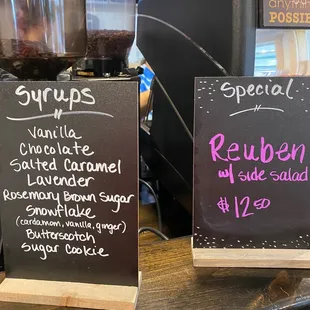 Syrups
Vanilla
Chocolate
Salted Caramel
Lavender
Rosemary Brown Sugar
Snowflake
(cardamom, vanilla, ginger)
Butterscotch
Sugar Cookie
Special
Reuben
w/ side salad
$12.50
anything
POSSIBLE